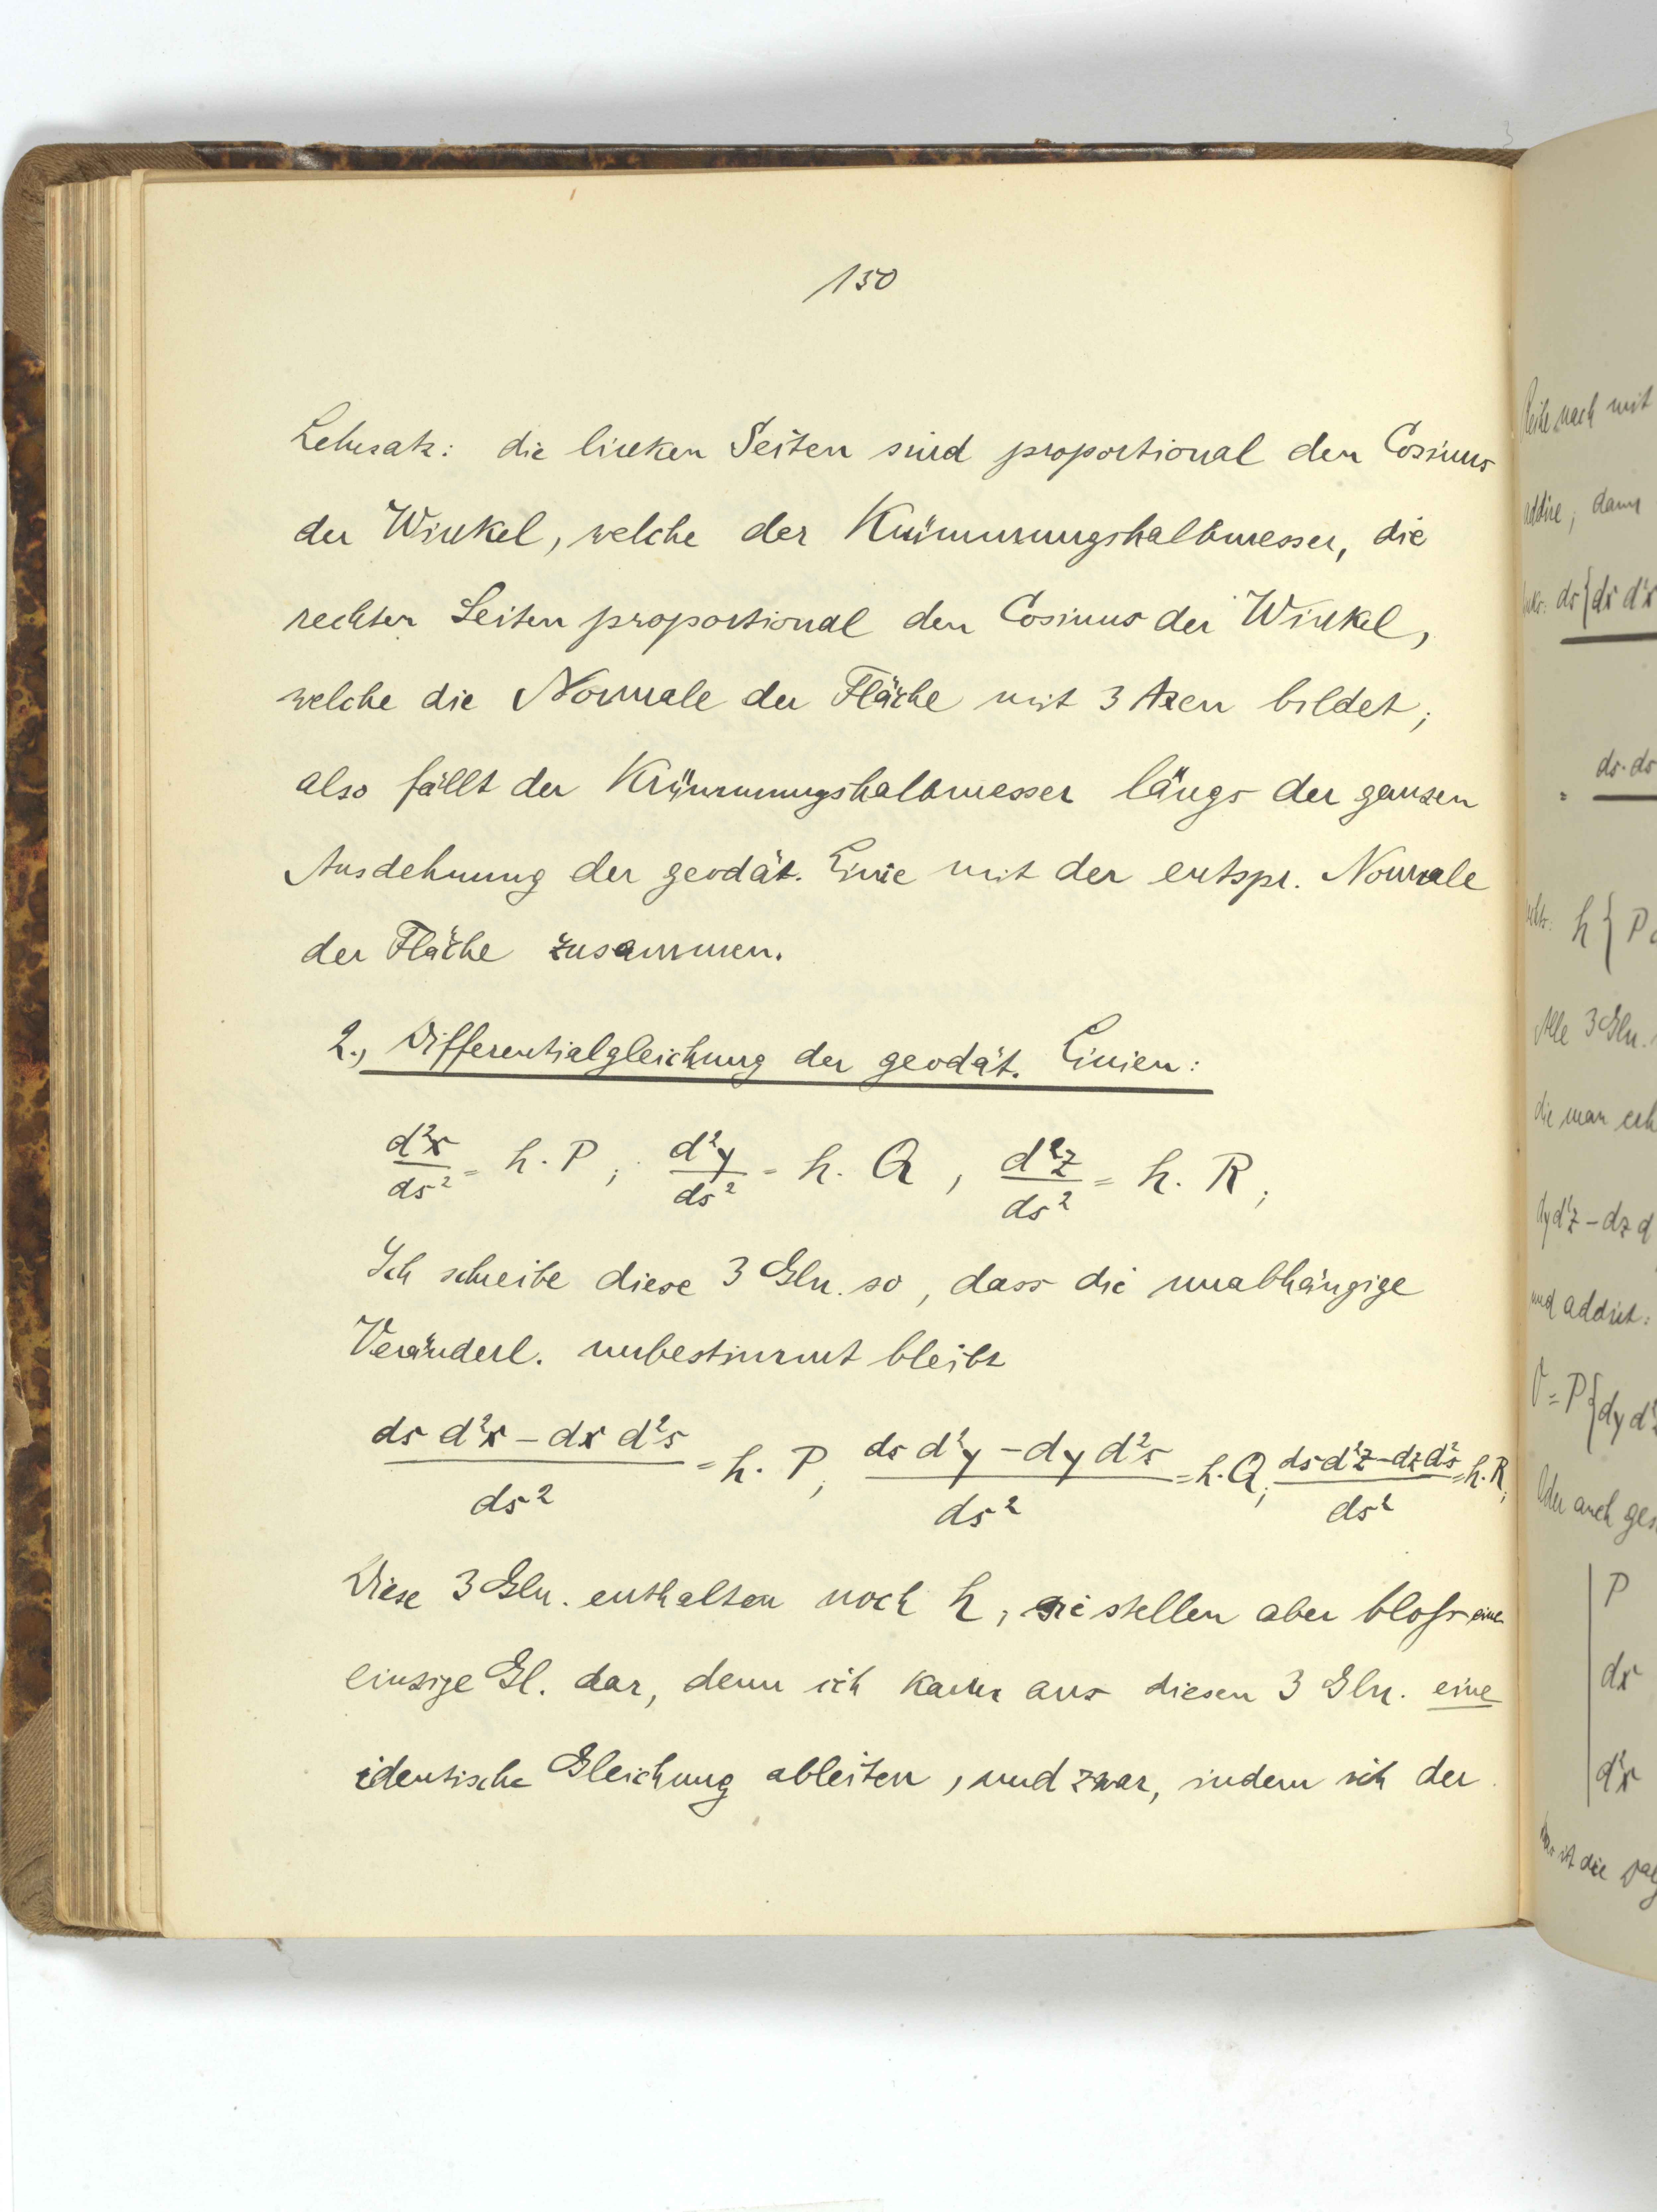 150
Lehrsatz: die linken Seiten sind proportional den Cosinus
der Winkel, welche der Krümmungshalbmesser, die
rechten Seiten proportional den Cosinus der Winkel,
welche die Normale der Fläche mit 3 Axen bildet;
also fällt der Krümmungshalbmesser längs der ganzen
Ausdehnung der geodät. Linie mit der entspr. Normale
der Fläche zusammen.
2., Differentialgleichung der geodät. Linien:
d²x/ds² = h. P ; d²y/ds² = h. Q , d²z/ds² = h. R ;
Ich schreibe diese 3 Gln. so, dass die unabhängige
Veränderl. unbestimmt bleibt
(ds d²x – dx d²s)/ds² = h. P ; (ds d²y – dy d²s)/ds² = h. Q ; (ds d²z – dz d²s)/ds² = h. R ;
Diese 3 Gln. enthalten noch h, sie stellen aber bloss eine
einzige Gl. dar, denn ich kann aus diesen 3 Gln. eine
identische Gleichung ableiten, und zwar, indem ich der
Reihe nach mit
addire, dann
ds{ds d²x
= ds. ds
h { P
Alle 3 Gln.
die man
dy d²z – dz d
und addirt:
0 = P{dy d²z
Oder auch
P
dx
d²x
ist die